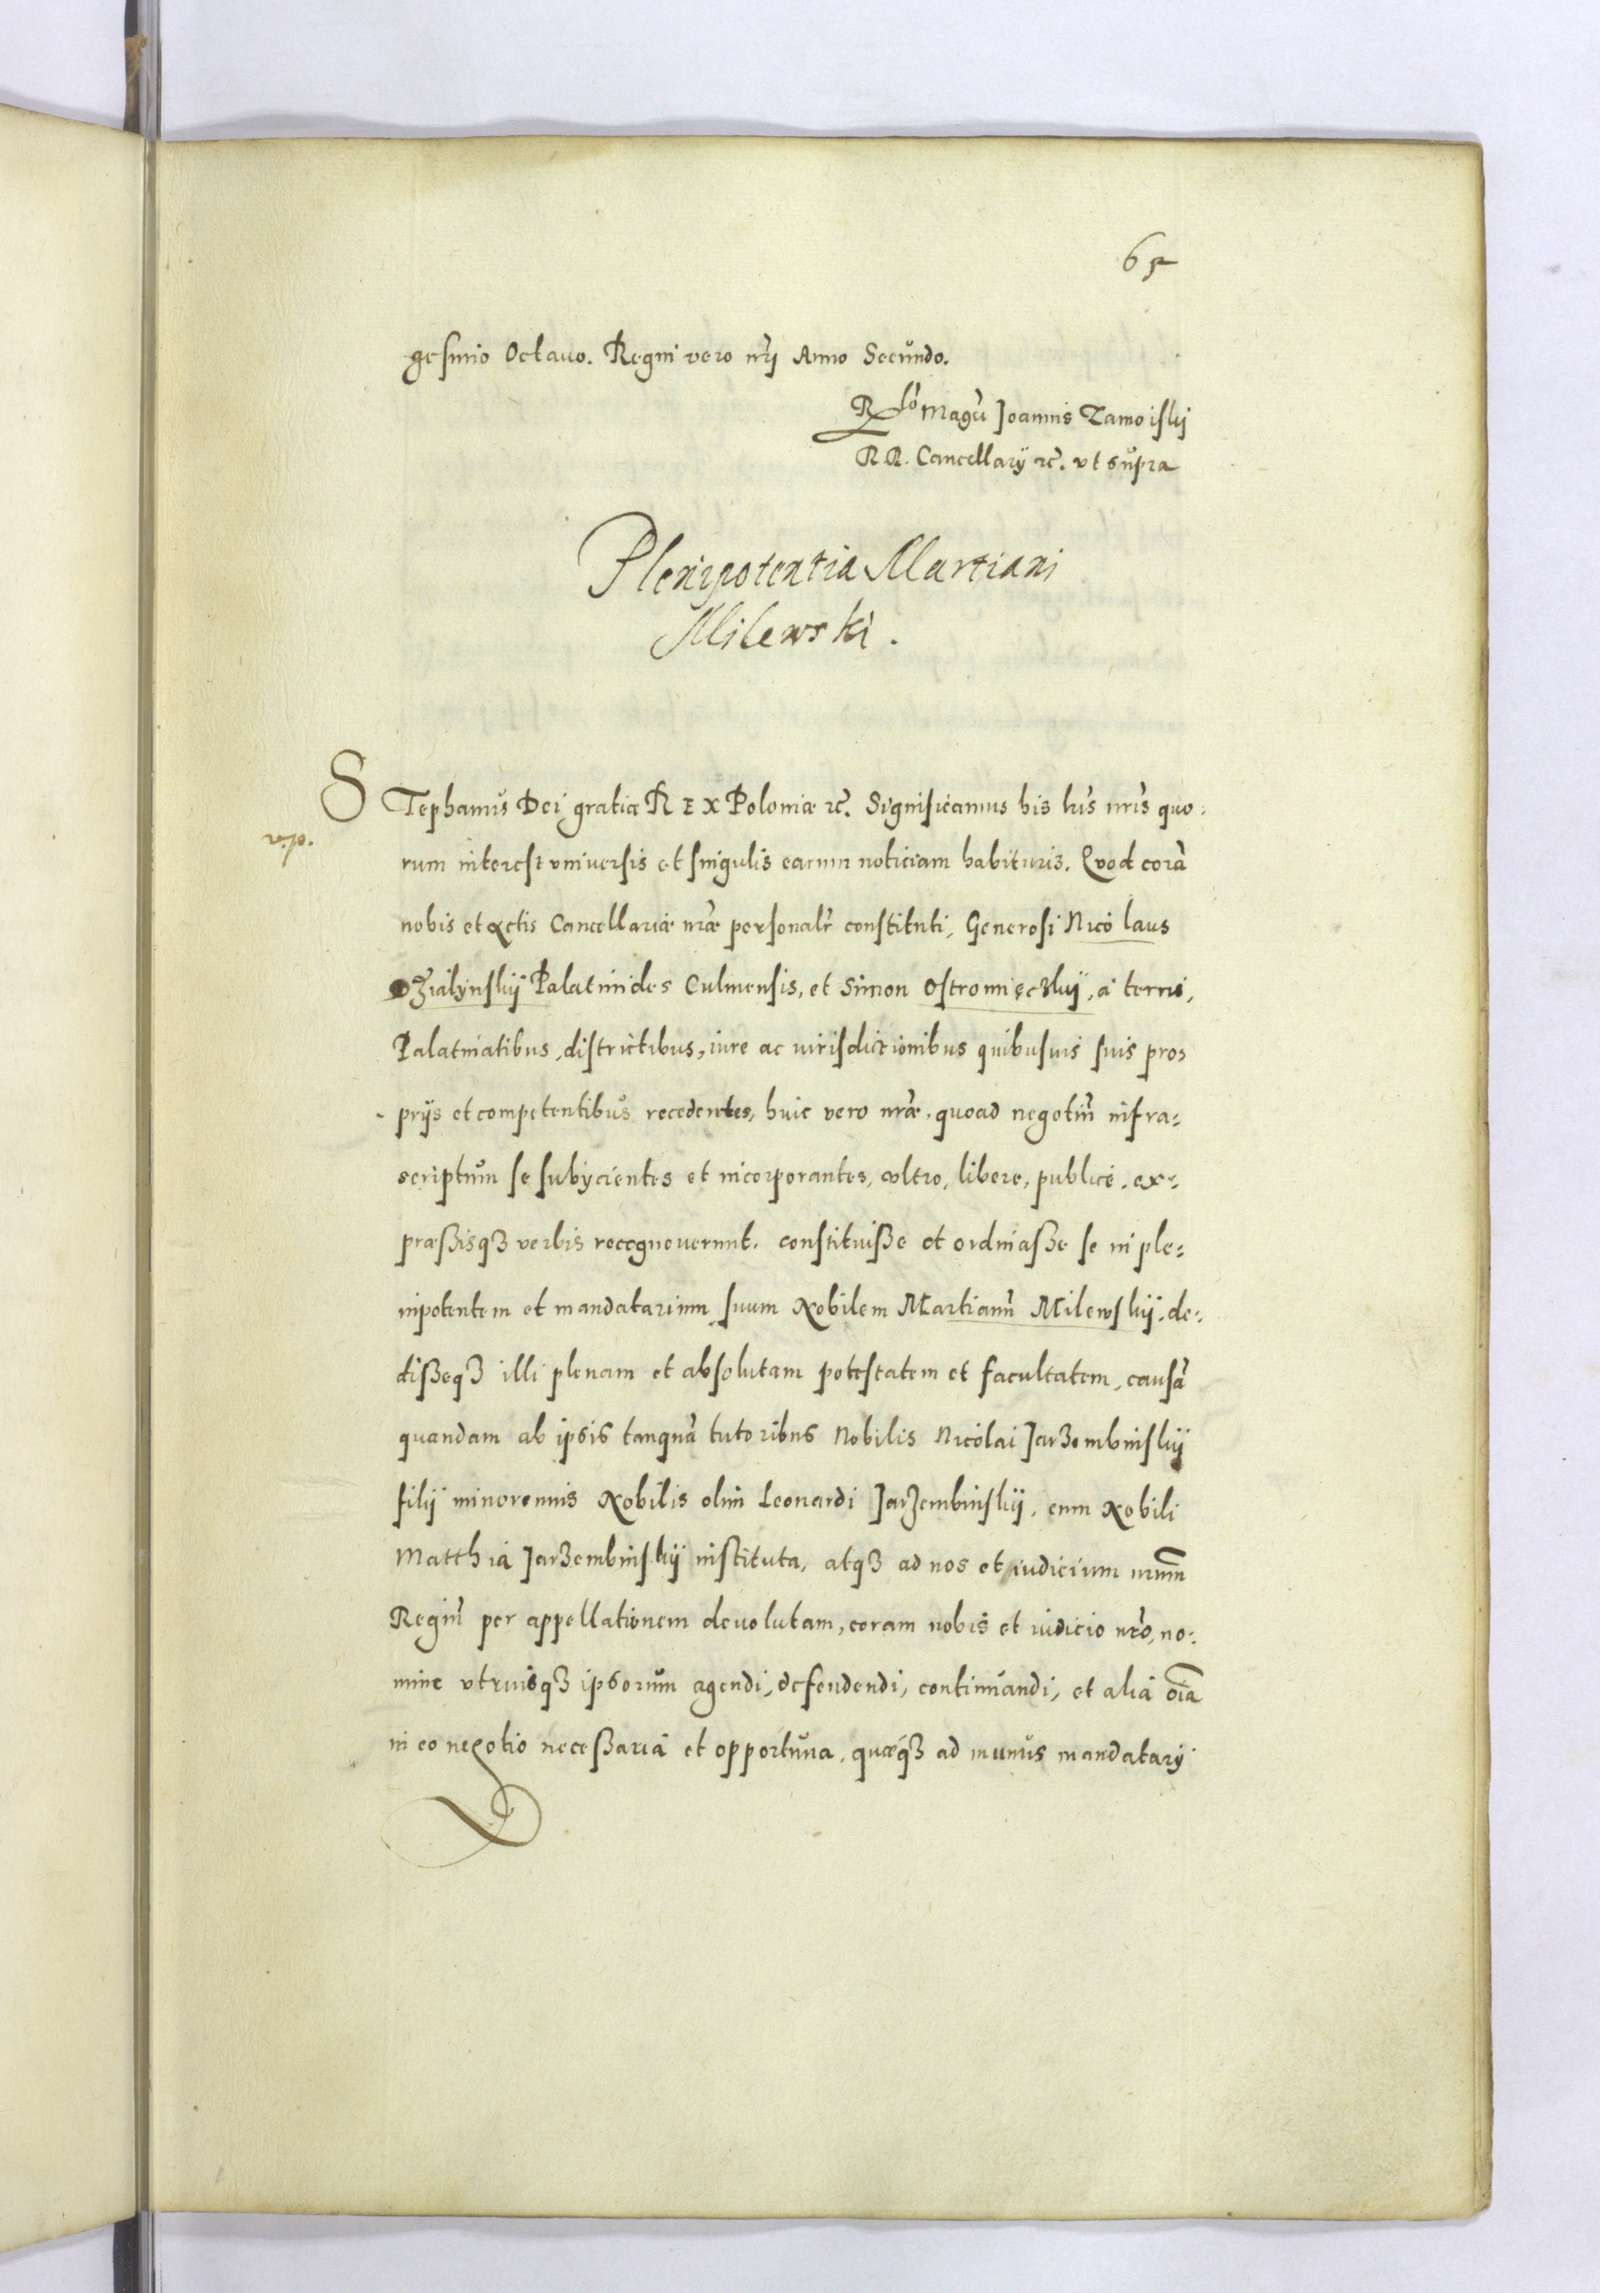 65
gesimo Octauo. Regni vero nr̃j Anno Secŭndo.
R̃lõ Magci Joannis Zamoiskij
R. R. Cancellarÿ zc̃. vt sŭpra
Plenipotentia Martiani
Milewski.
STephanŭs Dei gratia REX Poloniæ zc̃. Significamus his lr̃is nr̃is quo-
rum interest vniuersis et singulis earum noticiam habituris. Quod corã
nobis et Actis Cancellariæ nr̃æ personalr̃ constituti, Generosi Nicolaus
Dzialÿnskij Palatinides Culmensis, et Simon Ostromięczkij, à terris,
Palatinatibus, districtibus, iure ac iurisdictionibus quibusuis suis pro-
prijs et competentibŭs recedentes, huic vero nr̃æ, quoad negotiũ infra-
scriptŭm se subÿcientes et incorporantes, vltro, libere, publicè, ex-
præßisqꝫ verbis recognouerunt, constituiße et ordinaße se in ple-
nipotentem et mandatarium suum Nobilem Martianũ Milewskij, de-
dißeqꝫ illi plenam et absolutam potestatem et facultatem, causã
quandam ab ipsis tanquã tutoribus Nobilis Nicolai Jarzembinskij
filij minorennis Nobilis olim Leonardi Jarzembinskij, cum Nobili
Matthia Jarzembinskij instituta, atqꝫ ad nos et iudicium nr̃um
Regiũ per appellationem deuolutam, coram nobis et iudicio nr̃o, no-
mine vtriusqꝫ ipsorŭm agendi, defendendi, continŭandi, et alia oĩa
in eo negotio neceßaria et opportŭna, quæqꝫ ad munŭs mandatarÿ